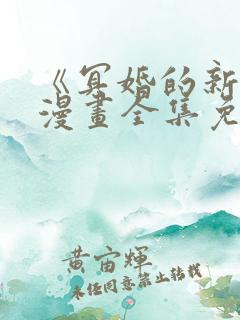 《冥婚的新
漫畫全集免
黄宙輝
未经同意禁止转载